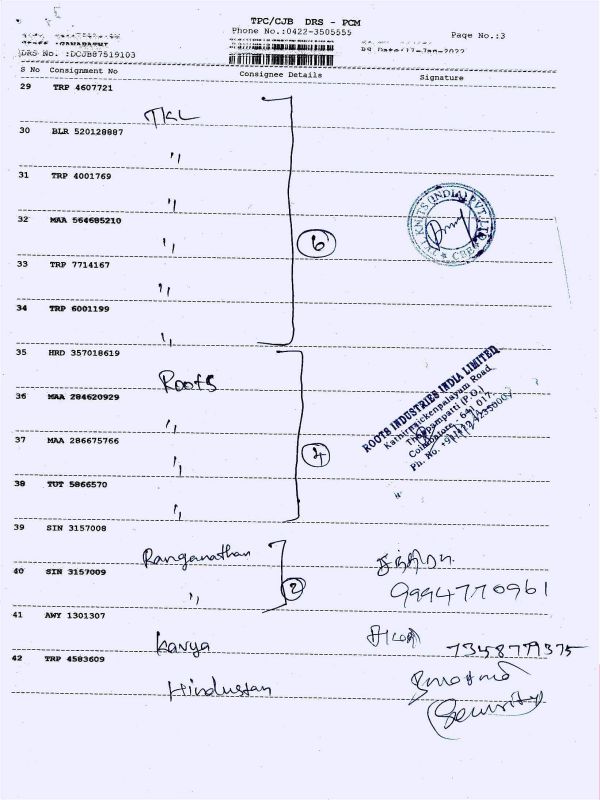 TPC/CJB DRS - PCM
Phone No.:0422-3505555
Page No.:3
DRS No. :DCJB87519103
S No Consignment No Consignee Details Signature
29 TRP 4607721
TKL
30 BLR 520128887
"
31 TRP 4001769
"
32 MAA 564685210
"
33 TRP 7714167
"
34 TRP 6001199
"
6
KNITS (INDIA) PVT. LTD
CBE
35 HRD 357018619
Roots
36 MAA 284620929
"
37 MAA 286675766
"
38 TUT 5866570
"
4
ROOTS INDUSTRIES INDIA LIMITED
Kathirnaickenpalayam Road,
Thoppampatti (P.O.)
Coimbatore - 641 017.
Ph. No.
39 SIN 3157008
Ranganathan
40 SIN 3157009
"
2
9994770961
41 AWY 1301307
Kavya
42 TRP 4583609
Hindustan
(Security)